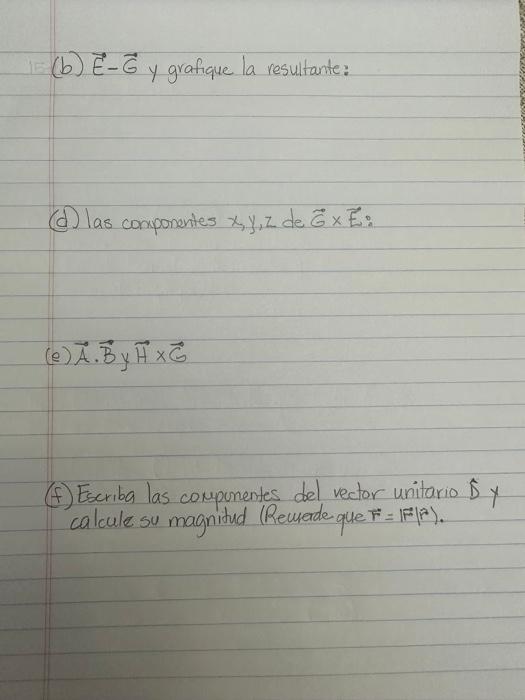 (b) E⃗ - G⃗ y grafique la resultante:
(d) las componentes x, y, z de G⃗ x E⃗:
(e) A⃗ . B⃗ y H⃗ x G⃗
(f) Escriba las componentes del vector unitario D̂ y
calcule su magnitud (Recuerde que r⃗ = |r⃗|r̂).